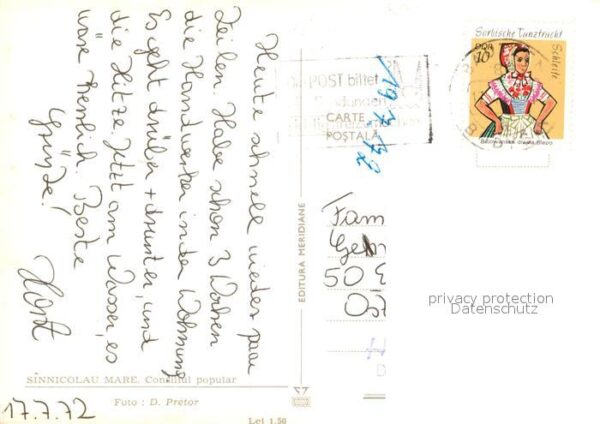 Heute schnell wieder paar
Zeilen. Habe schon 3 Wochen
die Handwerker in der Wohnung
Es geht drüber + drunter, und
die Hitze. Jetzt am Wasser, es
wäre herrlich. Beste
Grüße!
Horst
17.7.72
SÎNNICOLAU MARE. Consiliul popular
Foto : D. Pretor
Lei 1.50
EDITURA MERIDIANE
POST bittet
CARTE
POSTALĂ
19.7.72
Sorbische Tanztracht
DDR
10
Schleife
Fam
50
privacy protection
Datenschutz